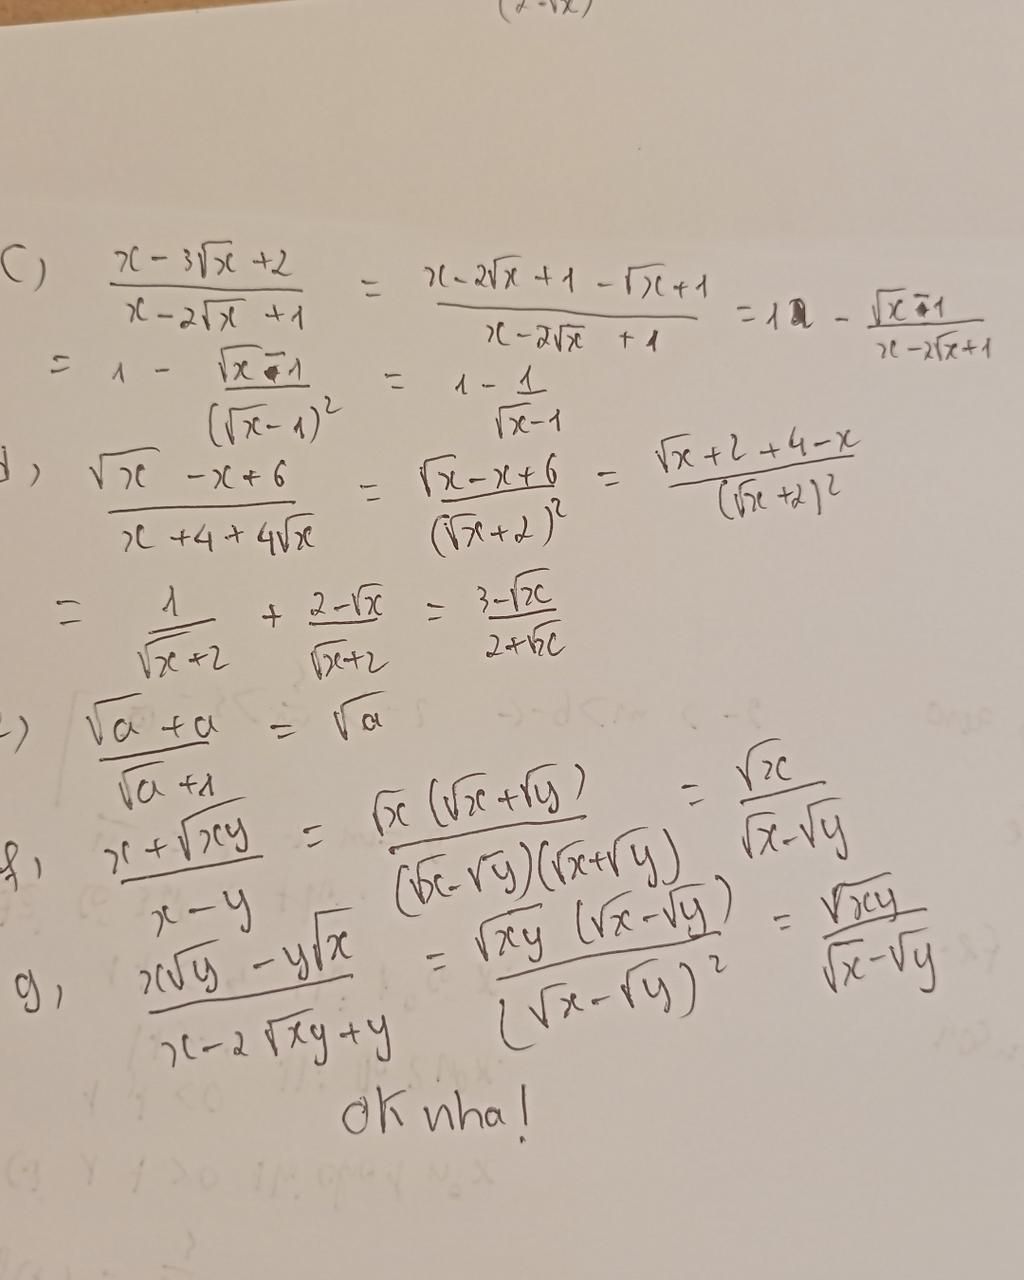 (2-√x)
c) (x-3√x+2)/(x-2√x+1) = (x-2√x+1-√x+1)/(x-2√x+1) = 1 - (√x-1)/(x-2√x+1)
= 1 - (√x-1)/(√x-1)² = 1 - 1/(√x-1)
d, (√x-x+6)/(x+4+4√x) = (√x-x+6)/(√x+2)² = (√x+2+4-x)/(√x+2)²
= 1/(√x+2) + (2-√x)/(√x+2) = (3-√x)/(2+√x)
) (√a+a)/(√a+1) = √a
f, (x+√xy)/(x-y) = √x(√x+√y)/(√x-√y)(√x+√y) = √x/(√x-√y)
g, (x√y-y√x)/(x-2√xy+y) = √xy(√x-√y)/(√x-√y)² = √xy/(√x-√y)
OK nha!